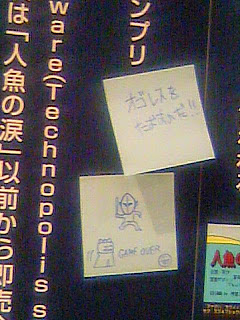 ンプリ
ware(Technopolis s
は「人魚の涙」以前から即売
オゴレスを
たおすのだ!!
GAME OVER
人魚の